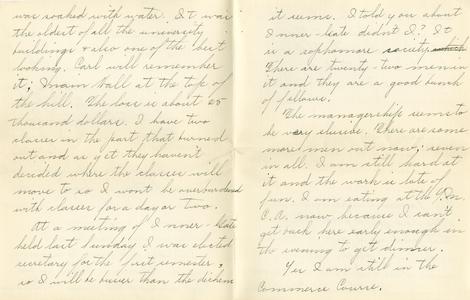 was soaked with water. It was
the oldest of all the university
buildings & also one of the best
looking. Carl will remember
it; Hall at the top of
the hill. The loss is about 25
thousand dollars. I have two
classes in the part that burned
out and as yet they haven't
decided where the classes will
move to so I won't be overburdened
with classes for a day or two.
At a meeting of Inner-Gate
held last Sunday I was elected
secretary for the first semester,
so I will be busier than the dickens
it seems. I told you about
Inner-Gate didn't I? It
is a sophomore society which
There are twenty-two men in
it and they are a good bunch
of fellows.
The managership seems to
be very elusive. There are some
more men out now; seven
in all. I am still hard at
it and the work is lots of
fun. I am eating at the Y.M.
C.A. now because I can't
get back here early enough in
the evening to get dinner.
Yes I am still in the
Commerce Course.